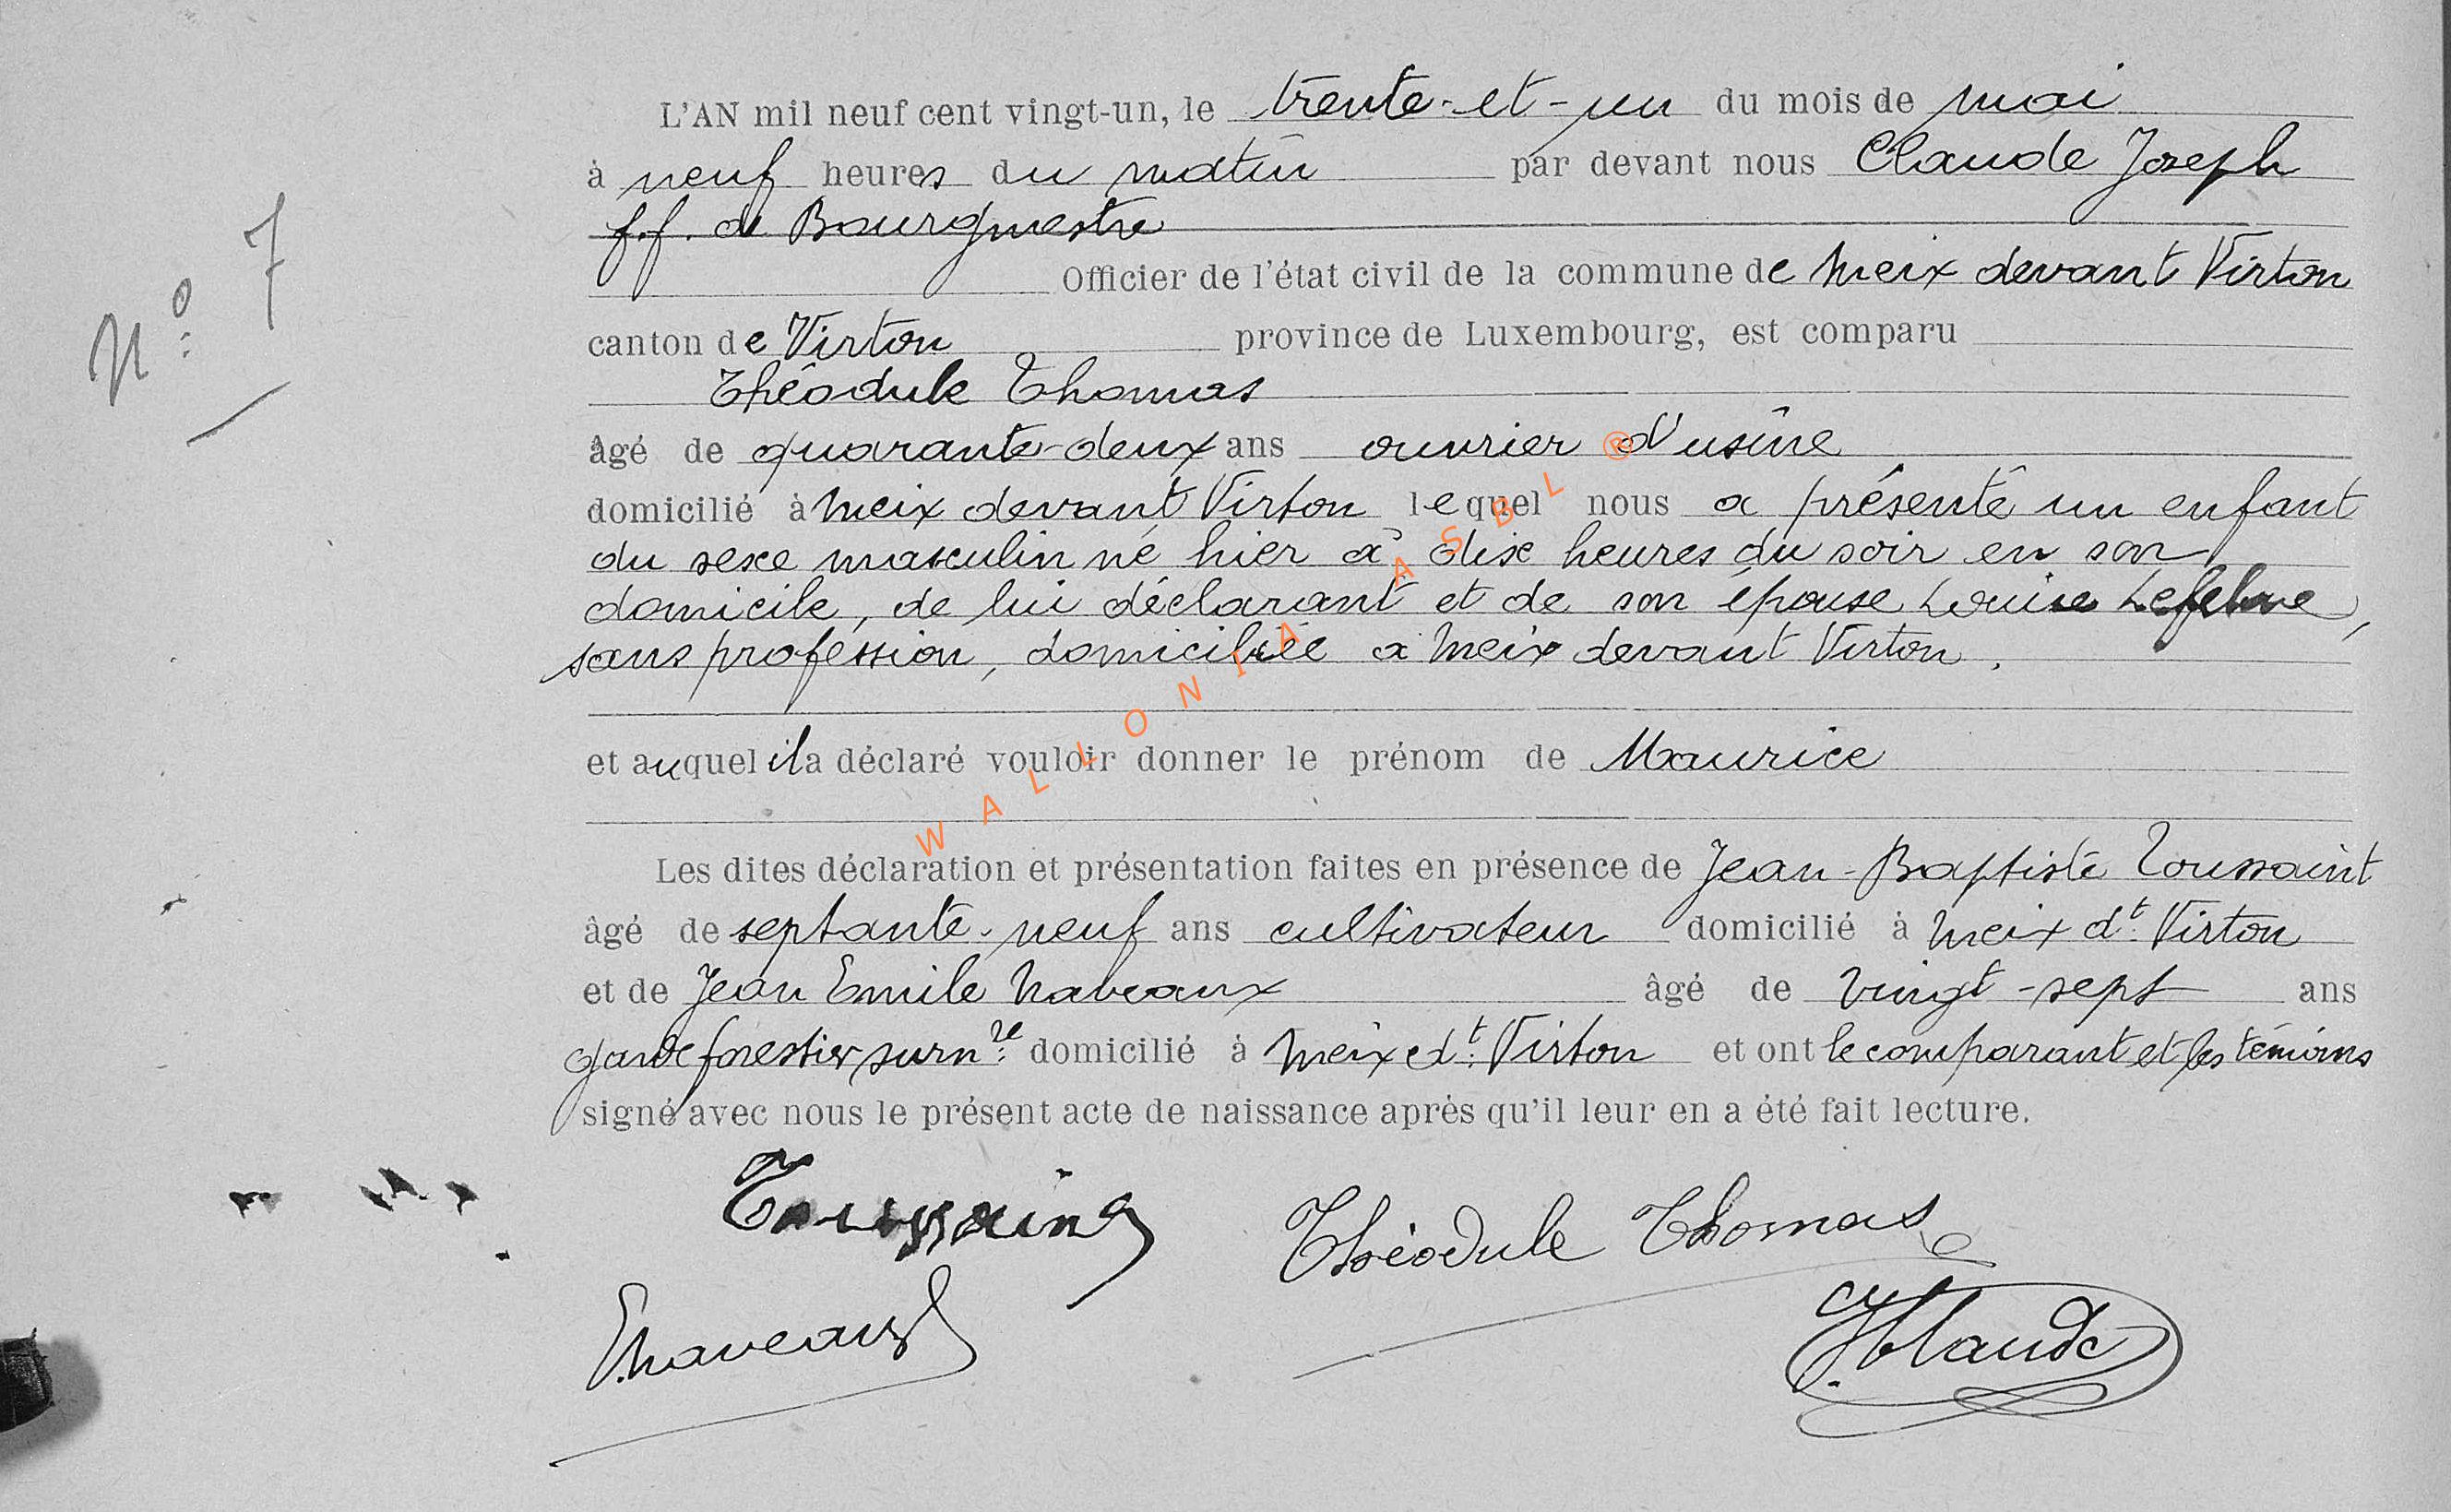 N° 7
L'AN mil neuf cent vingt-un, le trente-et-un du mois de mai
à neuf heures du matin par devant nous Claude Joseph
f.f. de Bourgmestre
Officier de l'état civil de la commune de Meix devant Virton
canton de Virton province de Luxembourg, est comparu
Théodule Thomas
âgé de quarante-deux ans ouvrier d'usine
domicilié à Meix devant Virton lequel nous a présenté un enfant
du sexe masculin né hier à dix heures du soir en son
domicile, de lui déclarant et de son épouse Louise Lefebvre,
sans profession, domiciliée à Meix devant Virton.
et auquel il a déclaré vouloir donner le prénom de Maurice
Les dites déclaration et présentation faites en présence de Jean-Baptiste Toussaint
âgé de septante-neuf ans cultivateur domicilié à Meix dt Virton
et de Jean Emile Naveaux âgé de vingt-sept ans
garde forestier surnre domicilié à Meix dt Virton et ont le comparant et les témoins
signé avec nous le présent acte de naissance après qu'il leur en a été fait lecture.
Toussaint
Théodule Thomas
E.Naveaux
J Claude
WALLONIA ASBL ®